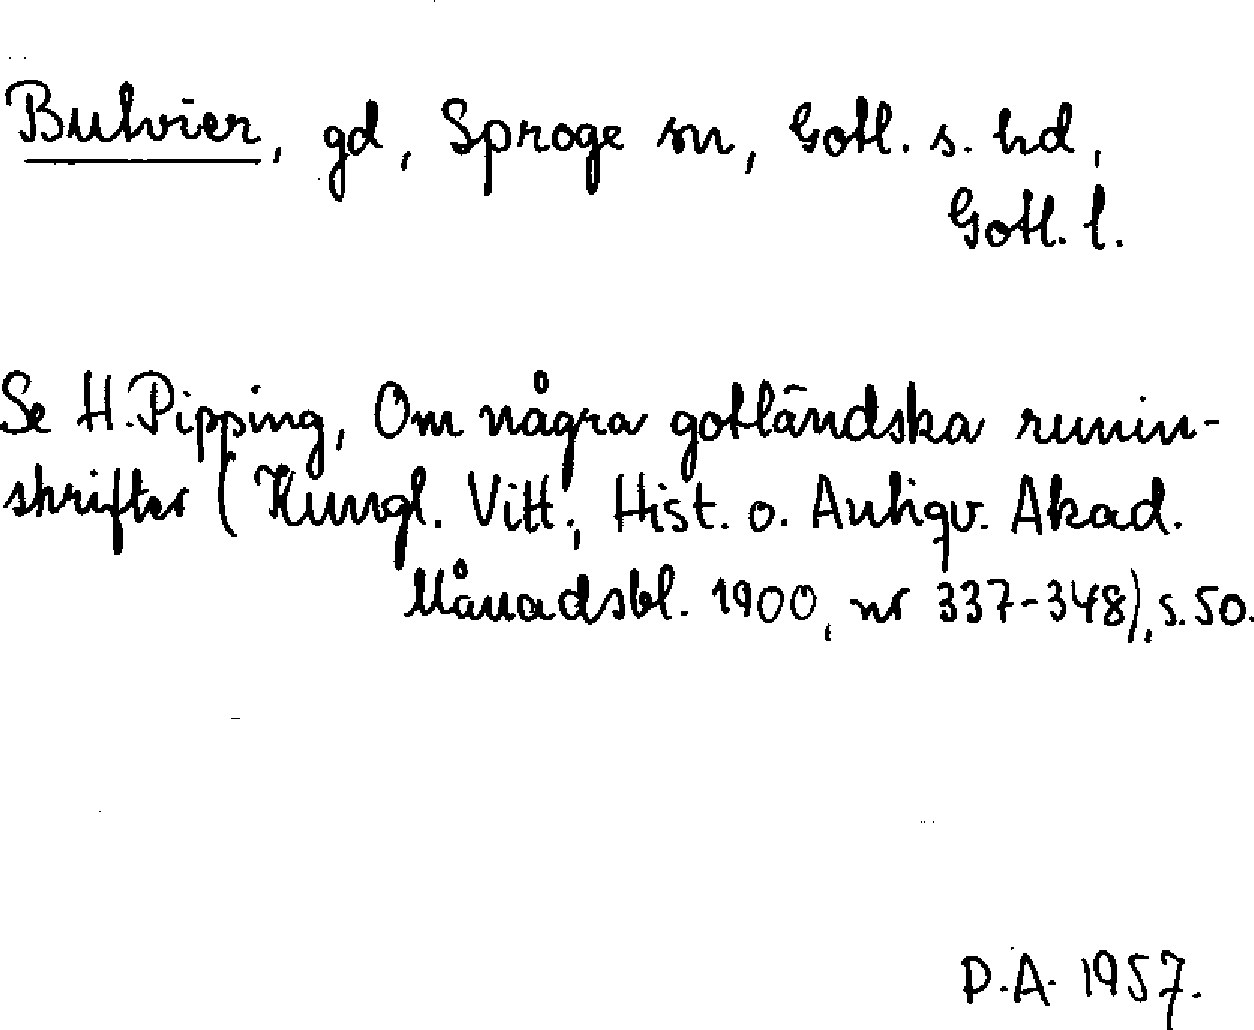 Butvier, gd, Sproge sn, Gotl. s. hd,
Gotl. l.
Se H. Pipping, Om några gotländska runin-
skrifter (Kungl. Vitt., Hist. o. Antiqv. Akad.
Månadsbl. 1900, nr 337-348), s. 50.
P.A. 1957.